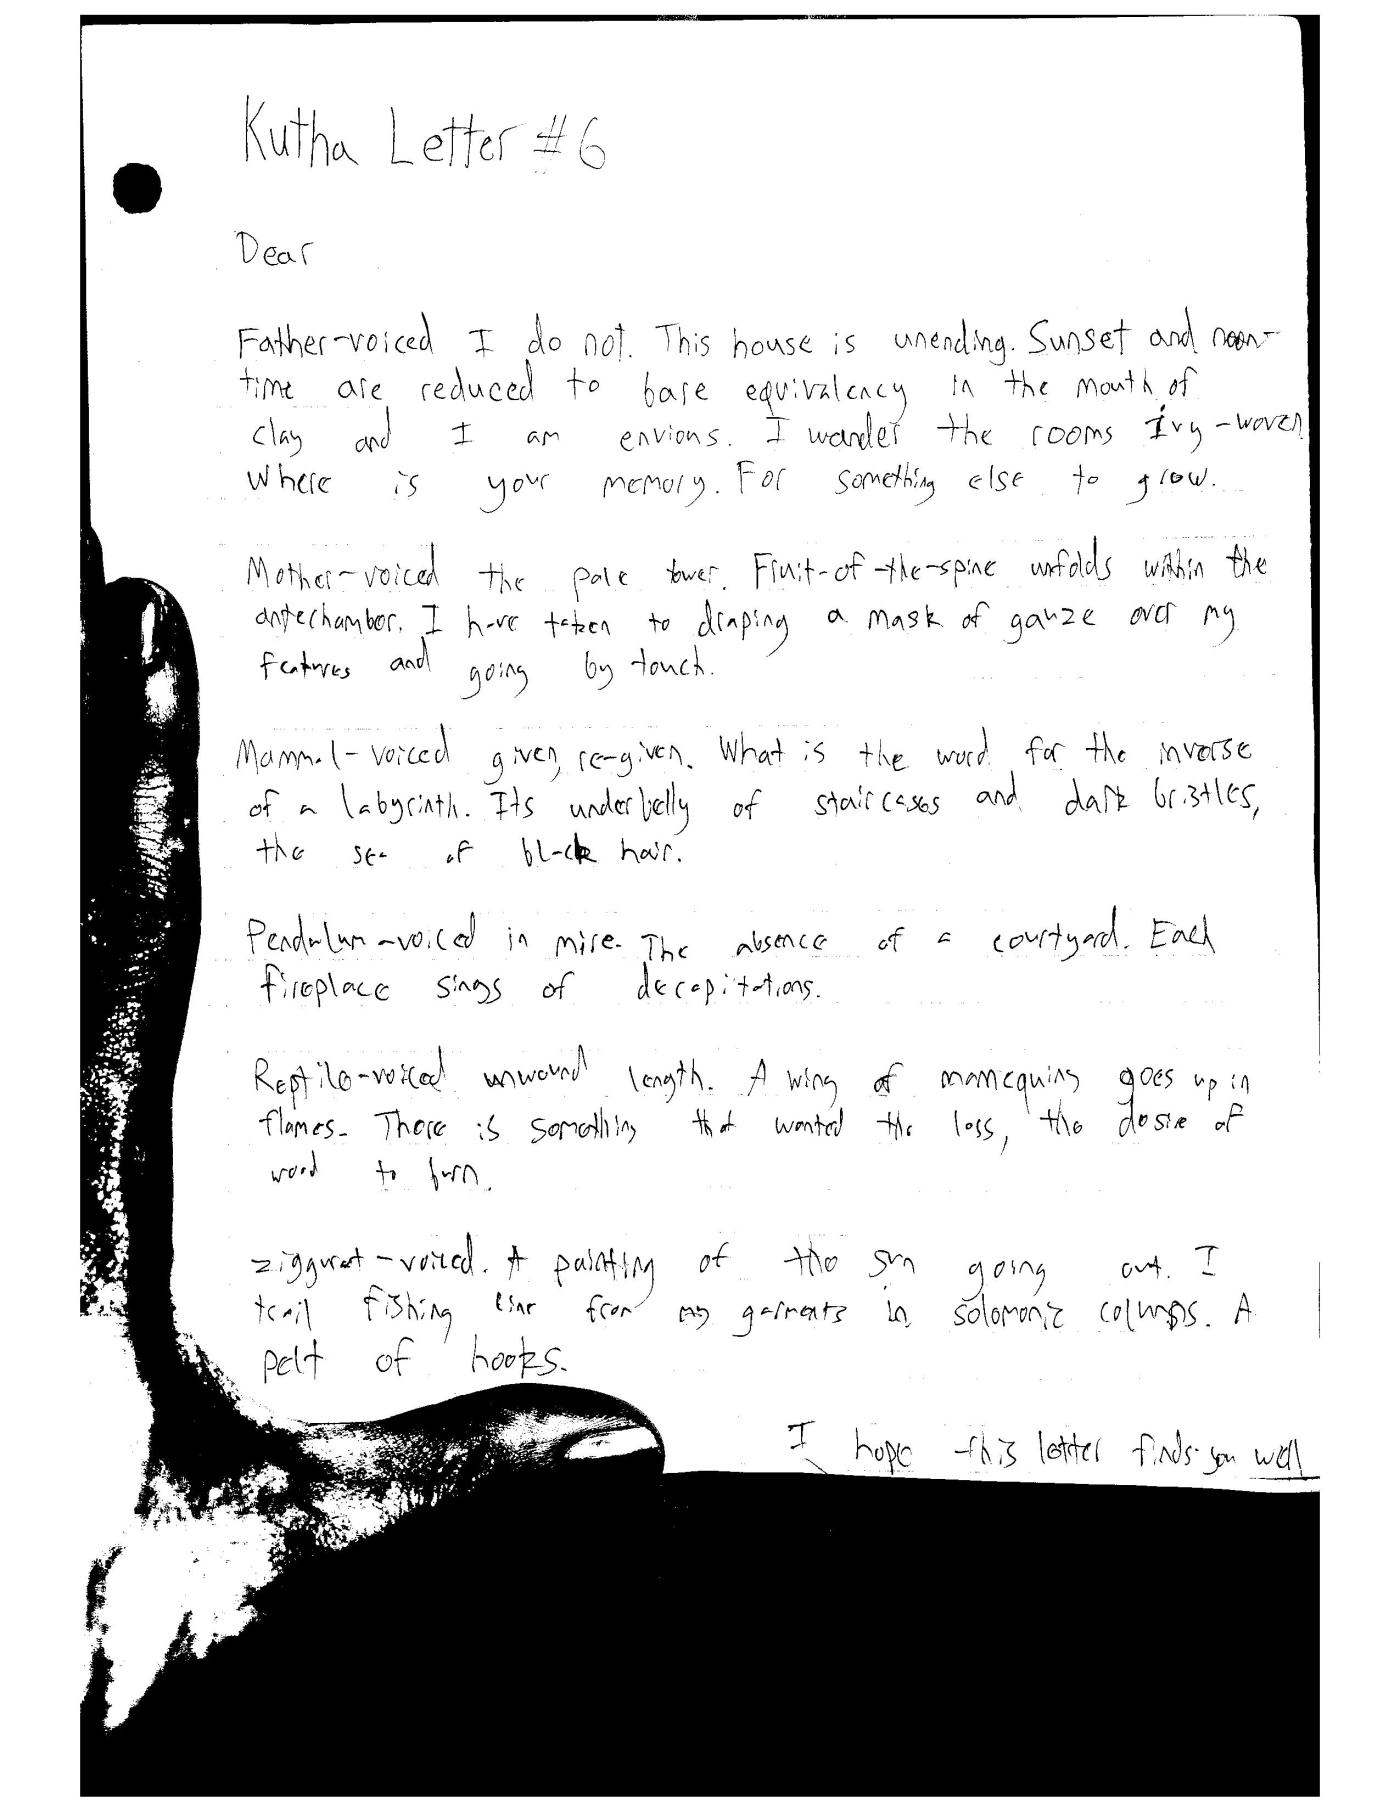 Kutha Letter #6
Dear
Father-voiced I do not. This house is unending. Sunset and noon-
time are reduced to bare equivalency in the mouth of
clay and I am envious. I wander the rooms Ivy-woven
Where is your memory. For something else to grow.
Mother-voiced the pale tower. Fruit-of-the-spine unfolds within the
antechamber. I have taken to draping a mask of gauze over my
features and going by touch.
Mammal-voiced given, re-given. What is the word for the inverse
of a labyrinth. Its underbelly of staircases and dark bristles,
the sea of black hair.
Pendulum-voiced in mire. The absence of a courtyard. Each
fireplace sings of decapitations.
Reptile-voiced unwound length. A wing of mannequins goes up in
flames. There is something that wanted the loss, the desire of
wood to burn.
ziggurat-voiced. A painting of the sun going out. I
trail fishing line from my garments in solomonic columns. A
pelt of hooks.
I hope this letter finds you well